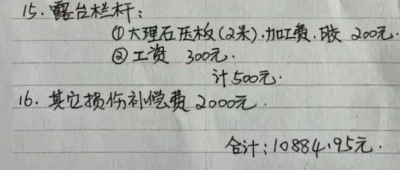 15. 露台栏杆:
①大理石压板(2米).加工费.胶 200元.
②工资 300元.
计500元.
16. 其它损伤补偿费 2000元.
合计:10884.95元.